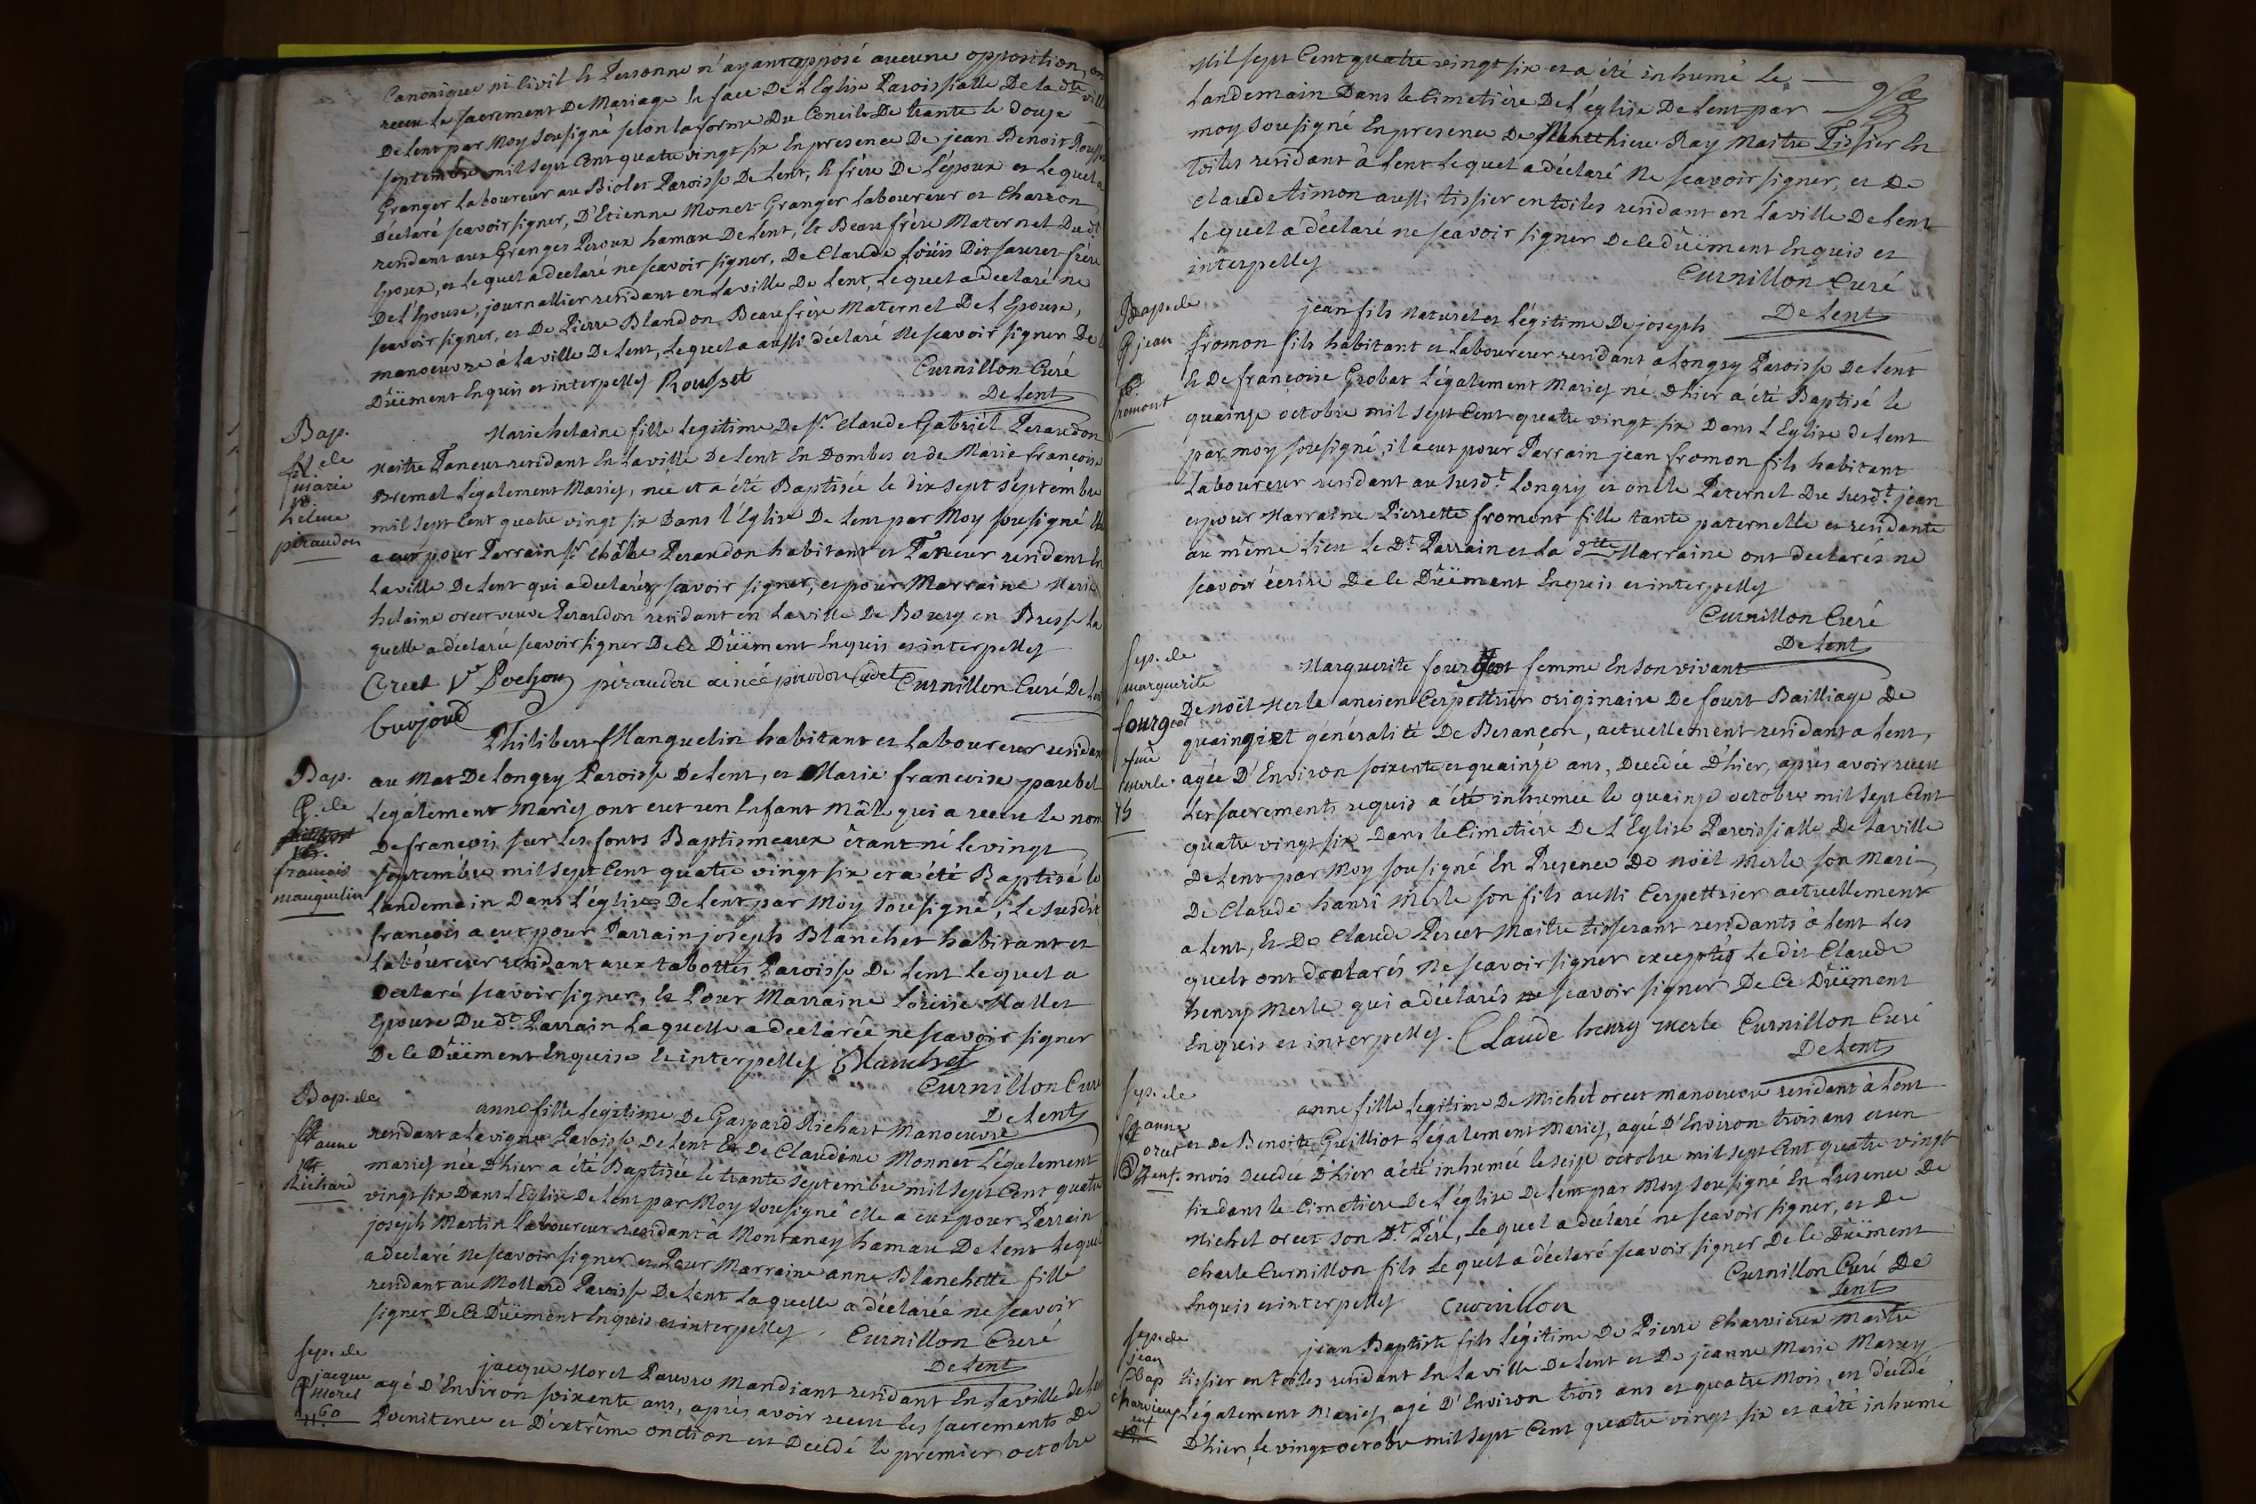 Canonique ni Civil Et Personne n'ayant opposé aucune opposition, on
receu Le Sacrement De Mariage En face De L'Eglise Paroissialle De la dte ville
De Lent par Moy sousigné selon la forme Du Concile De trante le douze
septembre mil sept Cent quatre vingt six En presence De jean Benoit
Granger Laboureur au Biolet Paroisse De Lent, Et frère De L'époux et Lequel a
Déclaré scavoir signer, D'Etienne Monet Granger Laboureur et Charron
residant aux Granges Peroux hamau De Lent, Et Beau frère Maternel Dudt
Epoux, et Lequel a declaré ne scavoir signer, De Claude foüin Dit frère
De L'Epouse, journallier residant en Laville De Lent, Lequel a declaré ne
scavoir signer, et De Pierre Blandon Beau frère Maternel De L'Epouse,
manoeuvre à Laville De Lent, Lequel a aussi déclaré Ne scavoir signer De Ce
Düement Enquis et interpelléz Rousset Curnillon Curé
De Lent
Bap.
fl de
marie
helene
péraudon
Marie helaine fille Legitime De Sr Claude Gabriël Peraudon
Maitre Taneur residant En Laville De Lent En Dombes et de Marie francoise
Bremal Légalement Mariéz, née et a été Baptisée le dix sept septembre
mil sept Cent quatre vingt six Dans L'Eglise De Lent par Moy sousigné Elle
a eut pour Parrain Sr Peraudon habitant et Taneur residant En
Laville De Lent qui a declaréz scavoir signer, et pour Marraine Marie
helaine orcet veuve Peraudon residant en Laville De Bourg en Bresse La
quelle a déclarée scavoir signer De Ce Düement Enquis et interpelléz
Orcet Ve Pochon péraudon ainée pérodon Cadet Curnillon Curé De Lent
Cuvjoud
Bap.
G. de
françois
mauguelin
Philibert Manguelin habitant et Laboureur residant
au Mas De Longry Paroisse De Lent, et Marie francoise paubel
Legalement Mariéz ont eut un Enfant Mâle qui a receu le nom
De francois sur Les fonts Baptismeaux êtant né le vingt
septembre mil sept Cent quatre vingt six et a été Baptisé le
Landemain Dans L'église De Lent par Moy sousigné, Le susdit
francois a eut pour Parrain joseph Blanchet habitant et
Laboureur residant aux tabottes Paroisse De Lent Lequel a
Declaré scavoir signer, Et Pour Marraine Loüise Mallet
Epouse Dudt Parrain Laquelle a declarée ne scavoir signer
De Ce Düement Enquise Et interpelléz Blanchet
Curnillon Curé
De Lent
Bap. de
fl anne
Richard
anne fille Legitime De Gaspard Richart Manoeuvre
residant a Lavigne Paroisse De Lent Et De Claudine Monnet Légalement
mariéz née D'hier a été Baptisée le trante septembre mil sept Cent quatre
vingt six Dans L'Eglise De Lent par Moy sousigné elle a eut pour Parrain
joseph Martin Laboureur residant à Montanay hamau De Lent Lequel
a declaré Ne scavoir signer, et Pour Marraine anne Blanchette fille
residant au Mollard Paroisse De Lent Laquelle a déclarée ne scavoir
signer De Ce Düement Enquis et interpelléz. Curnillon Curé
De Lent
Sep. de
jacque
Morel
60
jacque Morel Pauvre Mandiant residant En Laville de Lent
agé D'Environ soixente ans, après avoir receu les sacrements De
Pœnitence et D'extrême onction est Decedé le premier octobre
Mil sept Cent quatre vingt six et a été inhumé Le
Landemain Dans le Cimetière De L'église De Lent par
moy sousigné En presence De Matthieu Ray Maitre Tissier En
Toiles residant à Lent Lequel a déclaré Ne scavoir signer, et De
Claude timon aussi tissier en toiles residant en Laville De Lent
Lequel a déclaré ne scavoir signer De Ce düement Enquis et
interpelléz Curnillon Curé
De Lent
Bap. de
G jean
fromont
jean fils Naturél et Légitime De joseph
fromon fils habitant et Laboureur residant a Longry Paroisse De Lent
Et De francoise Grobat Légalement Mariéz né D'hier a été Baptisé le
quainze octobre mil sept Cent quatre vingt six Dans L'Eglise de Lent
par moy sousigné, il a eut pour Parrain jean fromon fils habitant
Laboureur residant au susdt Longry et oncle Paternel Du susdt jean
et pour Marraine Pierrette fromont fille tante paternelle et residante
au même Lieu Le Dt Parrain et La dtte Marraine ont declarés ne
scavoir écrire De Ce Düement Enquis et interpelléz
Curnillon Curé
De Lent
Sep. de
marguerite
fourgeot
fme
merle
75
Marguerite fourgeot femme En son vivant
De noël Merle ancien Cerpettrier originaire De fourt Bailliage De
quaingiet généralité De Besançon, actuellement residant a Lent,
agée D'Environ soixente et quainze ans, Decedée D'hier, après avoir receu
Les sacrements requis a été inhumée le quainze octobre mil sept Cent
quatre vingt six Dans le Cimetière De L'Eglise Paroissialle De Laville
De Lent par Moy sousigné En Presence De noël Merle son Mari
De Claude hanri Merle son fils aussi Cerpettrier actuellement
a Lent, Et De Claude Percet Maitre tisserant residants à Lent Les
quels ont declarés Ne scavoir signer exceptéz Le dit Claude
henry Merle qui a déclarés ne scavoir signer De Ce Düement
Enquis et interpelléz. Claude henry merle Curnillon Curé
De Lent
Sep. de
fl anne
orcet
3 enf.
anne fille Legitime De Michel orcet manoeuvre residant à Lent
et De Benoite Guilliot Légalement Mariéz, agé D'Environ trois ans et un
mois Decedée D'hier a été inhumée le seize octobre mil sept Cent quatre vingt
six dans le Cimetiere De L'église De Lent par Moy sousigné En Presence De
Michel orcet son Dt Père, Lequel a declaré ne scavoir signer, et De
Charle Curnillon fils Lequel a déclaré scavoir signer De Ce Düement
Enquis et interpelléz Curnillon Curnillon Curé De
Lent
Sep. de
jean
Bap
Charvieux
enf
jean Baptiste fils Légitime De Pierre Charvieux Maitre
tissier en toiles residant En Laville De Lent et De jeanne Marie Marrey
Légalement Mariéz agé D'Environ trois ans et quatre Mois, en décédé
D'hier, le vingt octobre mil sept Cent quatre vingt six et a été inhumé